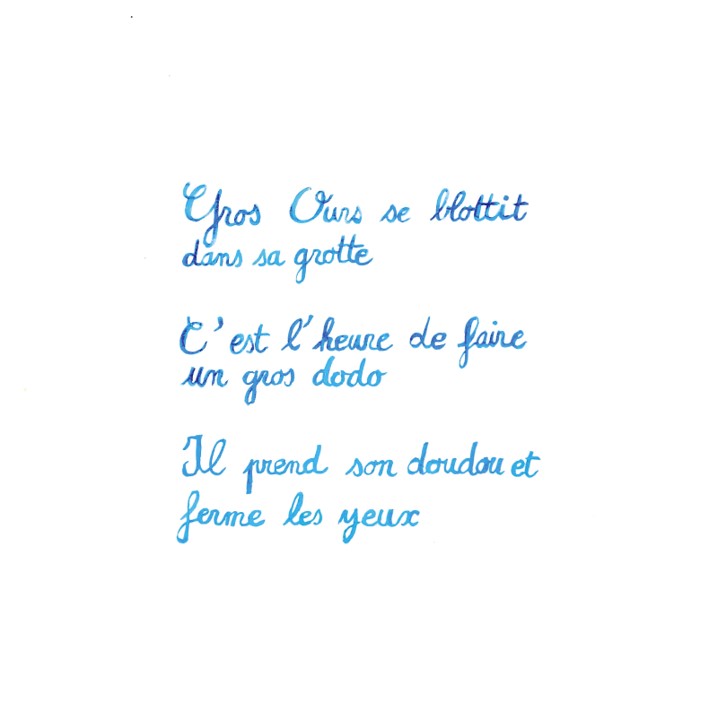 Gros Ours se blottit
dans sa grotte
C'est l'heure de faire
un gros dodo
Il prend son doudou et
ferme les yeux